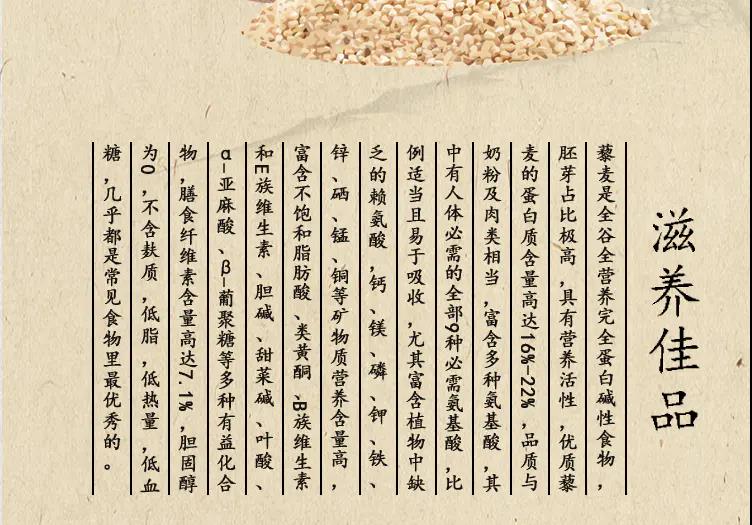 滋养佳品
藜麦是全谷全营养完全蛋白碱性食物，
胚芽占比极高，具有营养活性，优质藜
麦的蛋白质含量高达16%-22%，品质与
奶粉及肉类相当，富含多种氨基酸，其
中有人体必需的全部9种必需氨基酸，比
例适当且易于吸收，尤其富含植物中缺
乏的赖氨酸，钙、镁、磷、钾、铁、
锌、硒、锰、铜等矿物质营养含量高，
富含不饱和脂肪酸、类黄酮、B族维生素
和E族维生素、胆碱、甜菜碱、叶酸、
α-亚麻酸、β-葡聚糖等多种有益化合
物，膳食纤维素含量高达7.1%，胆固醇
为0，不含麸质，低脂，低热量，低血
糖，几乎都是常见食物里最优秀的。